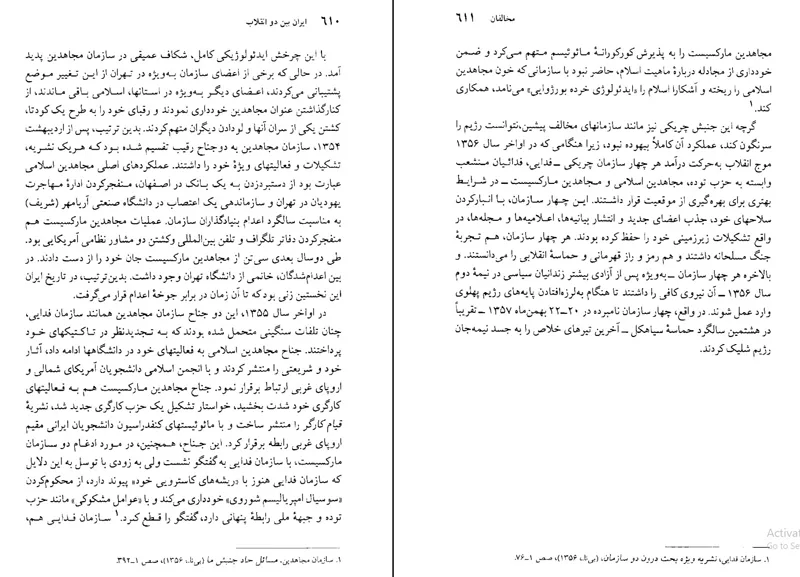 ۶۱۰ ایران بین دو انقلاب
با این چرخش ایدئولوژیکی کامل، شکاف عمیقی در سازمان مجاهدین پدید
آمد. در حالی که برخی از اعضای سازمان به‌ویژه در تهران از این تغییر موضع
پشتیبانی می‌کردند، اعضای دیگر به‌ویژه در استانها، اسلامی باقی ماندند، از
کنارگذاشتن عنوان مجاهدین خودداری نمودند و رقبای خود را به طرح یک کودتا،
کشتن یکی از سران آنها و لودادن دیگران متهم کردند. بدین ترتیب، پس از اردیبهشت
۱۳۵۴، سازمان مجاهدین به دوجناح رقیب تقسیم شده بود که هریک نشریه،
تشکیلات و فعالیتهای ویژهٔ خود را داشتند. عملکردهای اصلی مجاهدین اسلامی
عبارت بود از دستبردزدن به یک بانک در اصفهان، منفجرکردن ادارهٔ مهاجرت
یهودیان در تهران و سازماندهی یک اعتصاب در دانشگاه صنعتی آریامهر (شریف)
به مناسبت سالگرد اعدام بنیادگذاران سازمان. عملیات مجاهدین مارکسیست هم
منفجرکردن دفاتر تلگراف و تلفن بین‌المللی وکشتن دو مشاور نظامی آمریکایی بود.
طی دوسال بعدی سی‌تن از مجاهدین مارکسیست جان خود را از دست دادند. در
بین اعدام‌شدگان، خانمی از دانشگاه تهران وجود داشت. بدین‌ترتیب، در تاریخ ایران
این نخستین زنی بود که تا آن زمان در برابر جوخهٔ اعدام قرار می‌گرفت.
در اواخر سال ۱۳۵۵، این دو جناح سازمان مجاهدین همانند سازمان فدایی،
چنان تلفات سنگینی متحمل شده بودند که به تجدیدنظر در تاکتیکهای خود
پرداختند. جناح مجاهدین اسلامی به فعالیتهای خود در دانشگاهها ادامه داد، آثار
خود و شریعتی را منتشر کردند و با انجمن اسلامی دانشجویان آمریکای شمالی و
اروپای غربی ارتباط برقرار نمود. جناح مجاهدین مارکسیست هم به فعالیتهای
کارگری خود شدت بخشید، خواستار تشکیل یک حزب کارگری جدید شد، نشریهٔ
قیام کارگر را منتشر ساخت و با مائوئیستهای کنفدراسیون دانشجویان ایرانی مقیم
اروپای غربی رابطه برقرار کرد. این جناح، همچنین، در مورد ادغام دو سازمان
مارکسیست، با سازمان فدایی به گفتگو نشست ولی به زودی با توسل به این دلایل
که سازمان فدایی هنوز با «ریشه‌های کاسترویی خود» پیوند دارد، از محکوم‌کردن
«سوسیال امپریالیسم شوروی» خودداری می‌کند و با «عوامل مشکوکی» مانند حزب
توده و جبههٔ ملی رابطهٔ پنهانی دارد، گفتگو را قطع کرد.۱ سازمان فدایی هم،
۱. سازمان مجاهدین، مسائل حاد جنبش ما (بی‌نا، ۱۳۵۶)، صص ۱ـ۳۹۲.
مخالفان ۶۱۱
مجاهدین مارکسیست را به پذیرش کورکورانهٔ مائوئیسم متهم می‌کرد و ضمن
خودداری از مجادله دربارهٔ ماهیت اسلام، حاضر نبود با سازمانی که خون مجاهدین
اسلامی را ریخته و آشکارا اسلام را «ایدئولوژی خرده بورژوایی» می‌نامد، همکاری
کند.۱
گرچه این جنبش چریکی نیز مانند سازمانهای مخالف پیشین،نتوانست رژیم را
سرنگون کند، عملکرد آن کاملاً بیهوده نبود، زیرا هنگامی که در اواخر سال ۱۳۵۶
موج انقلاب به‌حرکت درآمد هر چهار سازمان چریکی ــ فدایی، فدائیان منشعب
وابسته به حزب توده، مجاهدین اسلامی و مجاهدین مارکسیست ــ در شرایط
بهتری برای بهره‌گیری از موقعیت قرار داشتند. این چهار سازمان، با انبارکردن
سلاحهای خود، جذب اعضای جدید و انتشار بیانیه‌ها، اعلامیه‌ها و مجله‌ها، در
واقع تشکیلات زیرزمینی خود را حفظ کرده بودند. هر چهار سازمان، هم تجربهٔ
جنگ مسلحانه داشتند و هم رمز و راز قهرمانی و حماسهٔ انقلابی را می‌دانستند. و
بالاخره هر چهار سازمان ــ به‌ویژه پس از آزادی بیشتر زندانیان سیاسی در نیمهٔ دوم
سال ۱۳۵۶ ــ آن نیروی کافی را داشتند تا هنگام به‌لرزه‌افتادن پایه‌های رژیم پهلوی
وارد عمل شوند. در واقع، چهار سازمان نامبرده در ۲۰ـ۲۲ بهمن‌ماه ۱۳۵۷ ــ تقریباً
در هشتمین سالگرد حماسهٔ سیاهکل ــ آخرین تیرهای خلاص را به جسد نیمه‌جان
رژیم شلیک کردند.
۱. سازمان فدایی، نشریه ویژه بحث درون دو سازمان، (بی‌نا، ۱۳۵۶)، صص ۱ـ۷۶.
Activat
Go to Se